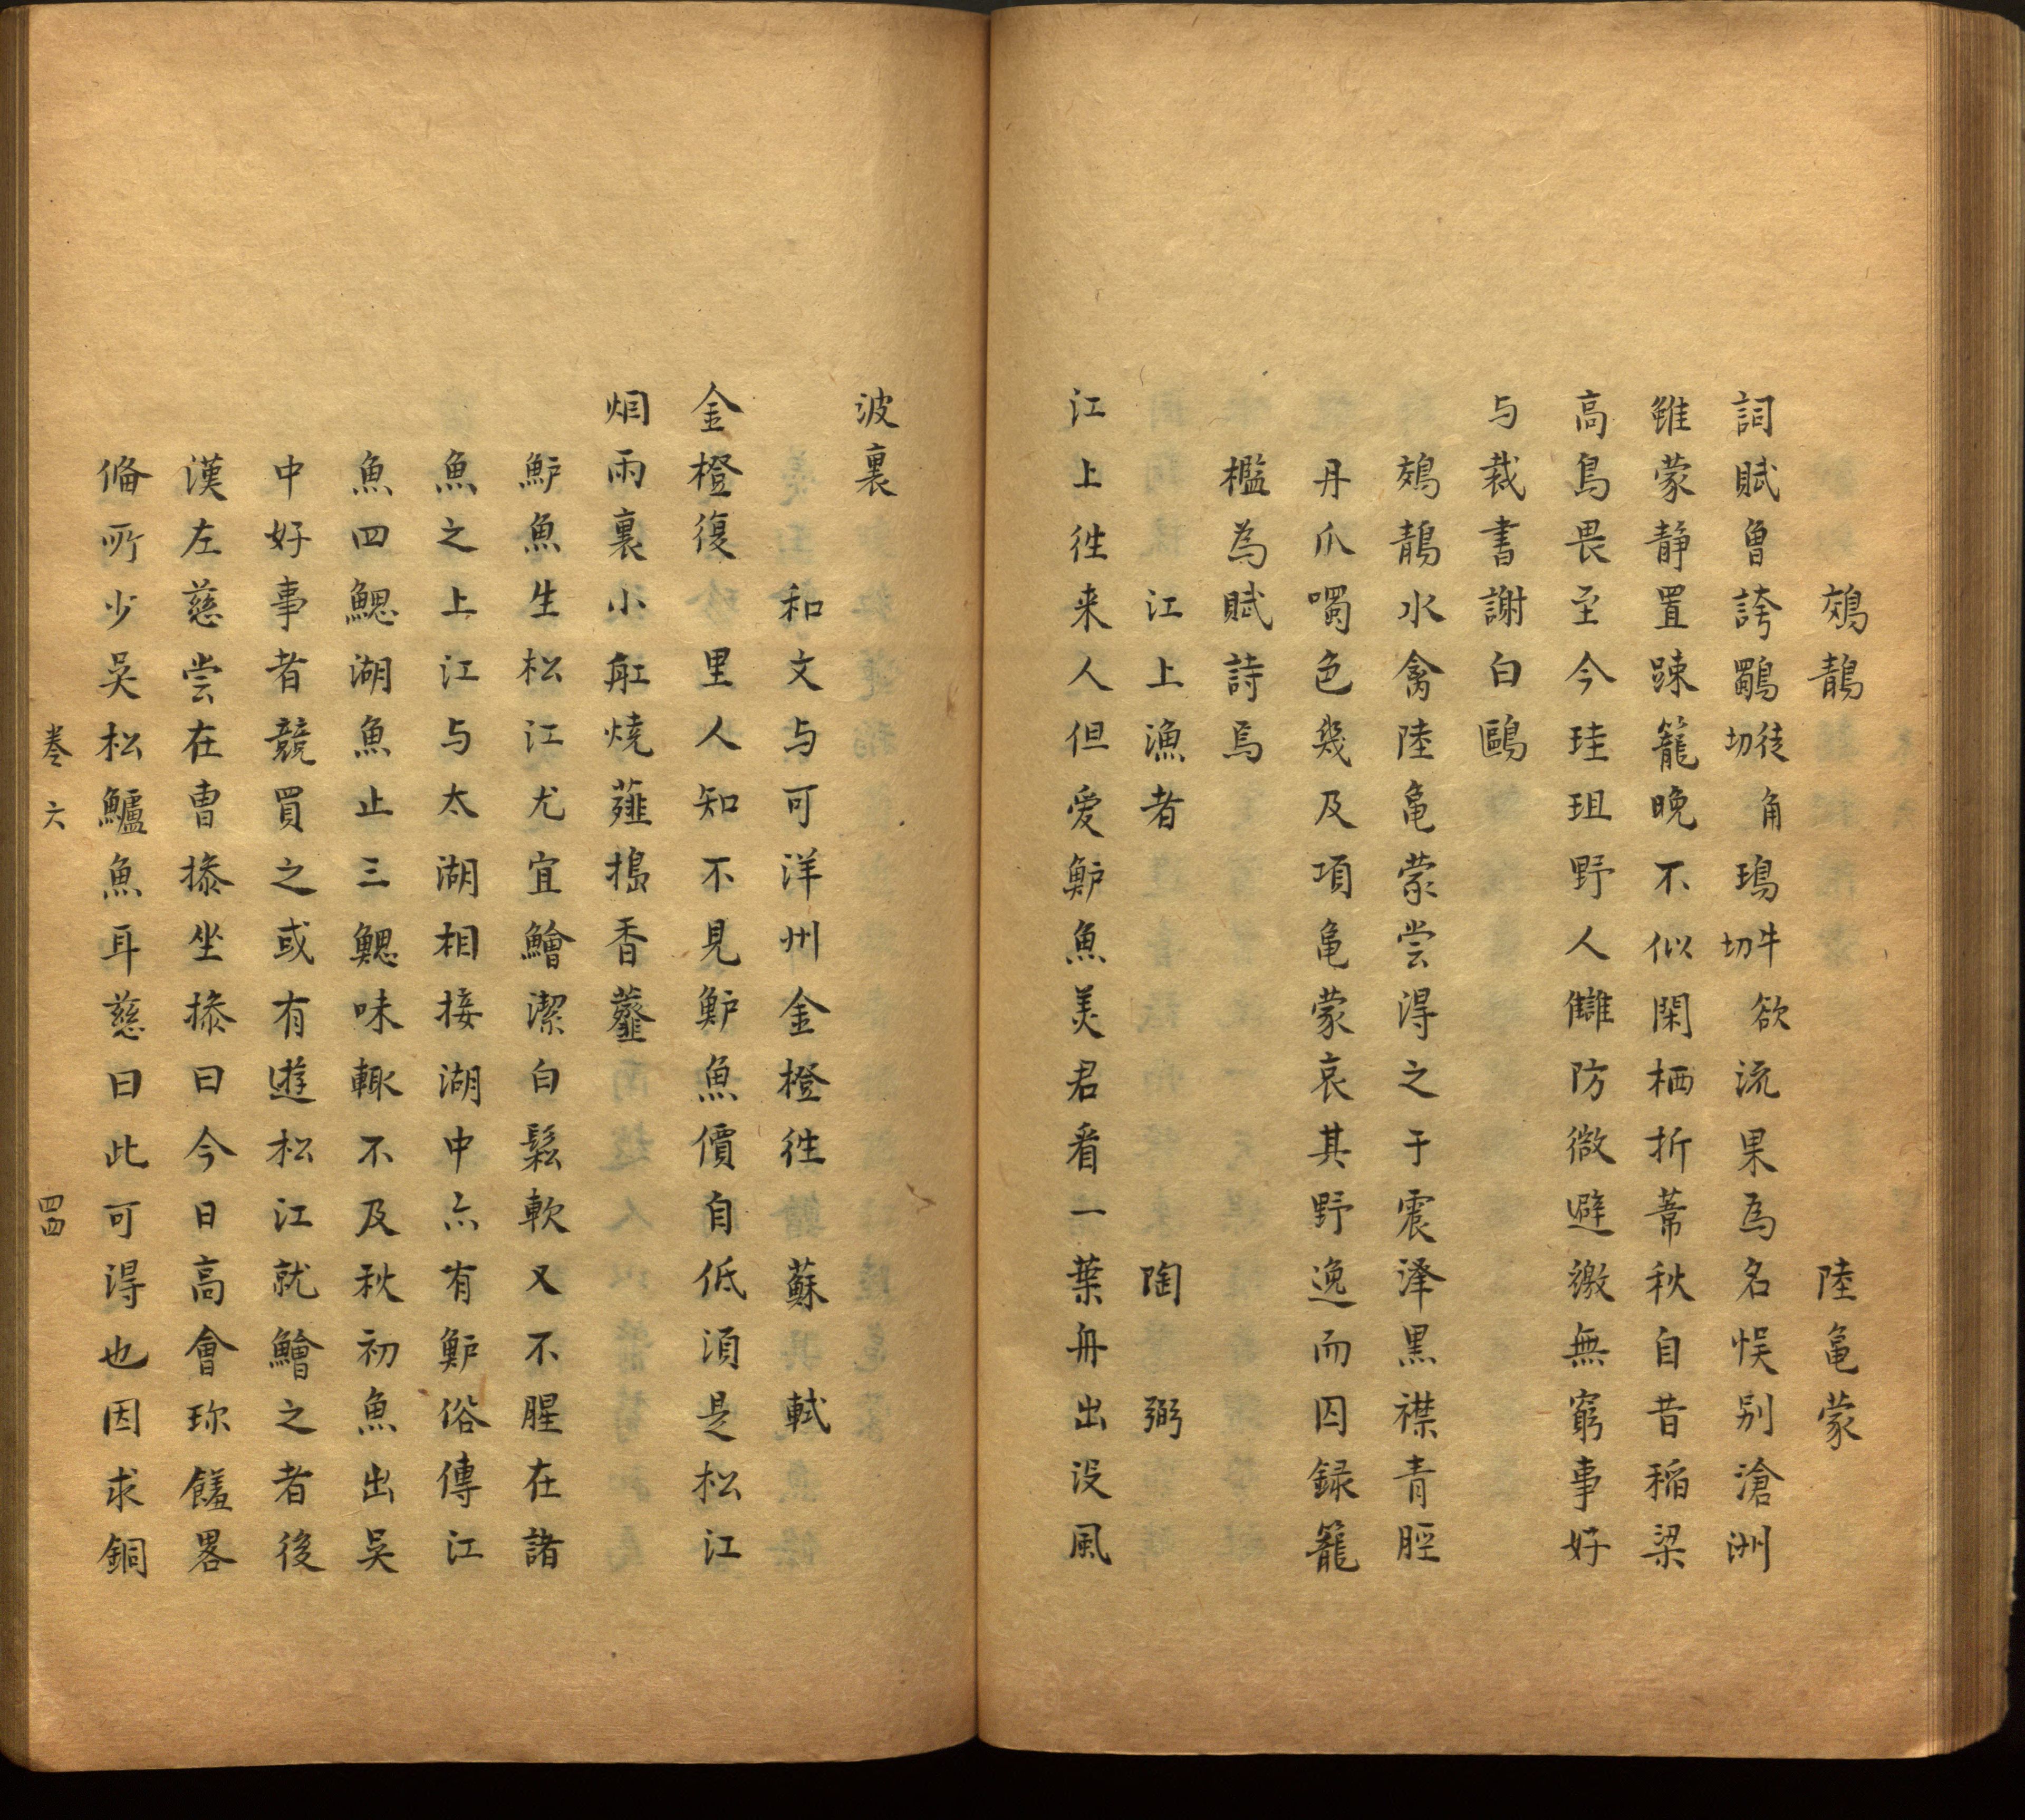 鵁鶄　陸龜蒙
詞賦曽誇鸀徒角切鳿牛欲切流果為名悮别滄洲
雖蒙静置踈籠晚不似閑栖折蔕秋自昔稲梁
高鳥畏至今珪珇野人讎防微避繳無窮事好
与裁書謝白鷗
鵁鶄水禽陸龜蒙尝淂之于震澤黒襟青脛
丹爪噣色㡬及項龜蒙哀其野逸而囚録籠
檻為賦詩焉
江上漁者　陶弼
江上徃来人但爱鲈魚美君看一葉舟出没風
波裏
和文与可洋州金橙徃　蘇軾
金橙復里人知不見鲈魚價自低湏是松江
烟雨裏小舡燒薤擣香虀
鲈魚生松江尤宜鱠潔白鬆軟又不腥在諸
魚之上江与太湖相接湖中亦有鲈俗傳江
魚四鰓湖魚止三鰓味輙不及秋初魚出吴
中好事者競買之或有遊松江就鱠之者後
漢左慈尝在曹操坐操曰今日高會珎饈畧
俻所少吴松鱸魚耳慈曰此可淂也因求銅
巻六　四四